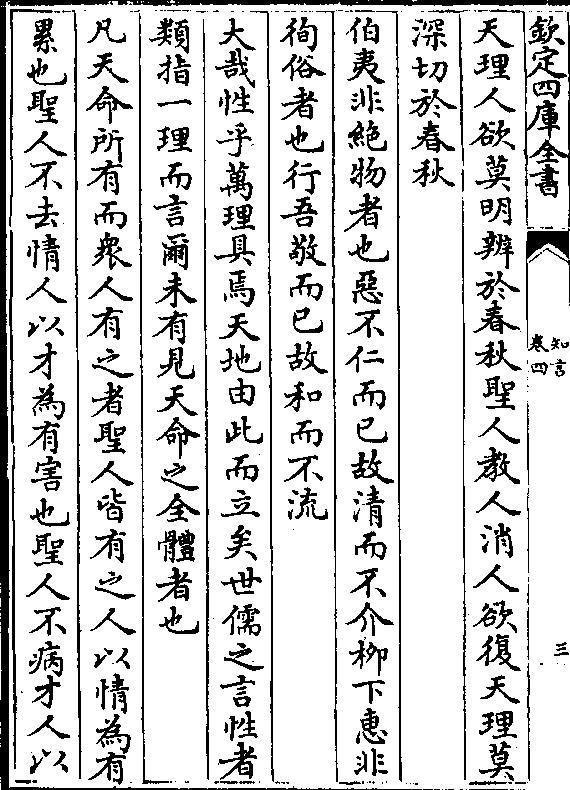 欽定四庫全書
知言
卷四
三
天理人欲莫明辨於春秋聖人教人消人欲復天理莫
深切於春秋
伯夷非絶物者也惡不仁而已故清而不介柳下惠非
徇俗者也行吾敬而已故和而不流
大哉性乎萬理具焉天地由此而立矣世儒之言性者
類指一理而言爾未有見天命之全體者也
凡天命所有而衆人有之者聖人皆有之人以情為有
累也聖人不去情人以才為有害也聖人不病才人以